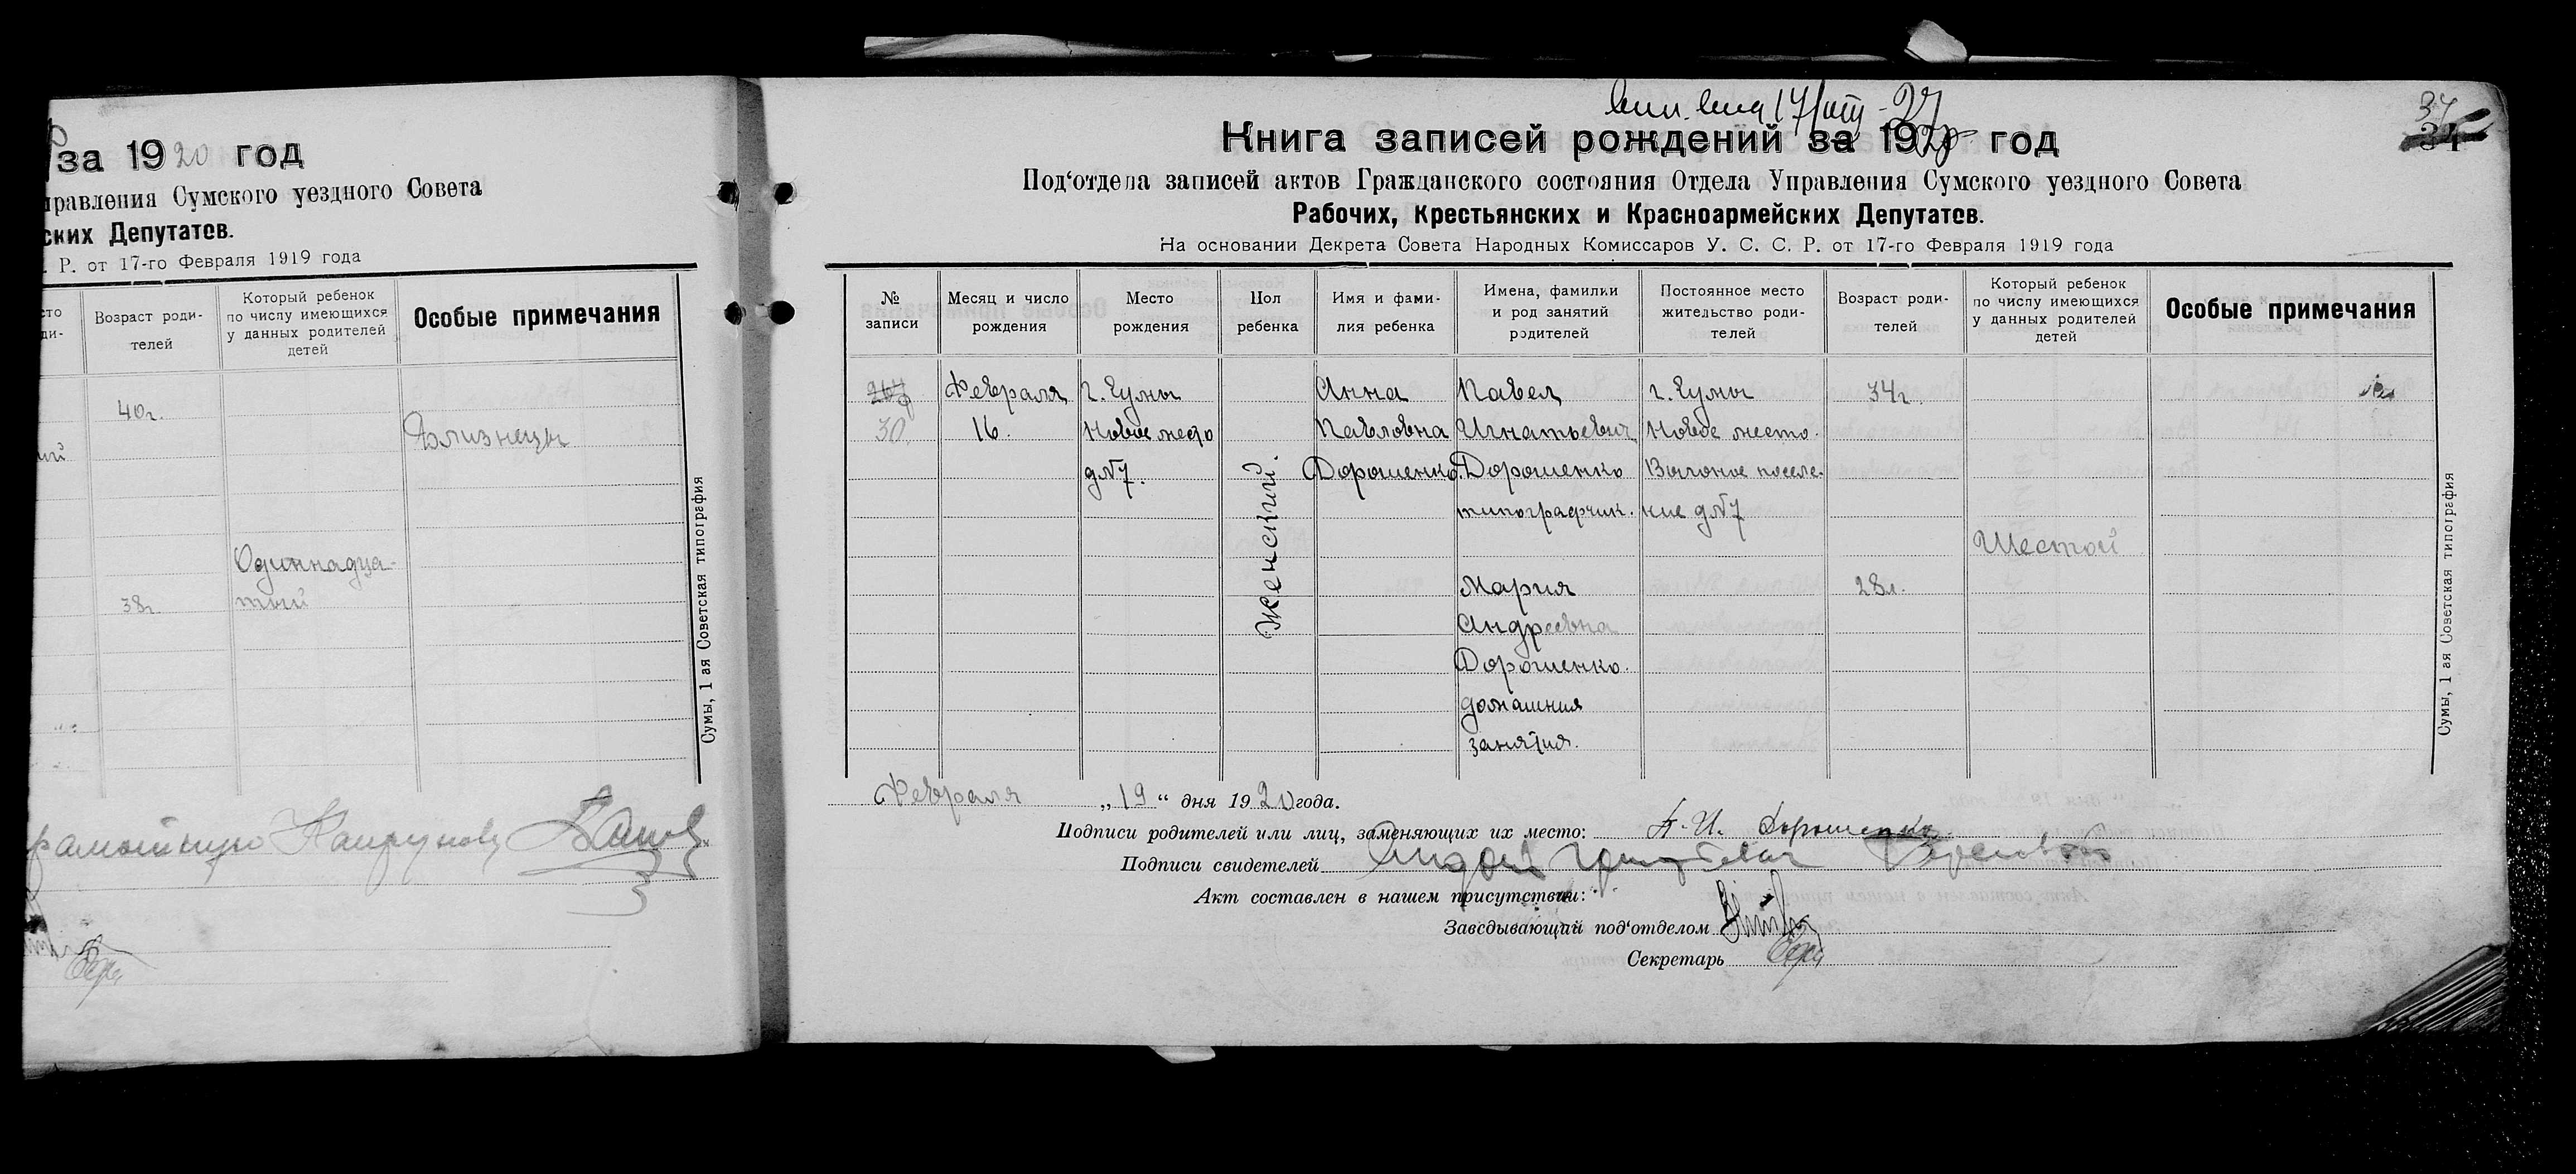 за 1920 год
правления Сумского уездного Совета
ских Депутатов.
. Р. от 17-го Февраля 1919 года
Возраст роди-
телей
Который ребенок
по числу имеющихся
у данных родителей
детей
Особые примечания
40г.
Близнецы
Одиннадца-
тый
38г.
Сумы, 1 ая Советская типография
37
34
Книга записей рождений за 1920 год
Под‘отдела записей актов Гражданского состояния Отдела Управления Сумского уездного Совета
Рабочих, Крестьянских и Красноармейских Депутатов.
На основании Декрета Совета Народных Комиссаров У. С. С. Р. от 17-го Февраля 1919 года
№
записи
Месяц и число
рождения
Место
рождения
Пол
ребенка
Имя и фами-
лия ребенка
Имена, фамилки
и род занятий
родителей
Постоянное место
жительство роди-
телей
Возраст роди-
телей
Который ребенок
по числу имеющихся
у данных родителей
детей
Особые примечания
30
Февраля
16.
г. Сумы
Новое место
д№7.
Женский.
Анна
Павловна
Дорошенко.
Павел
Игнатьевич
Дорошенко
типографчик.
Мария
Андреевна
Дорошенко.
домашния
занятия.
г. Сумы
Новое место.
Вигоное поселе-
ние д№7
34г.
28л.
Шестой
Сумы, 1 ая Советская типография
Февраля „19“ дня 1920 года.
Подписи родителей или лиц, заменяющих их место: П. И. Дорошенко
Подписи свидетелей
Акт составлен в нашем присутствии:
Заведывающий под‘отделом
Секретарь